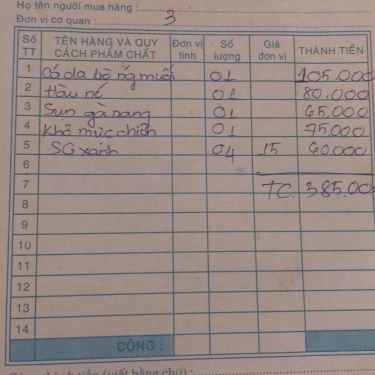 Họ tên người mua hàng :
Đơn vị cơ quan : 3
Số TT TÊN HÀNG VÀ QUY CÁCH PHẨM CHẤT Đơn vị tính Số lượng Giá đơn vị THÀNH TIỀN
1 Cá da bò nướng muối 01 105.000
2 Hàu né 01 80.000
3 Sụn gà rang 01 65.000
4 Khô mực chiên 01 75.000
5 SG xanh 04 15 60.000
6
7 TC: 385.00
8
9
10
11
12
13
14
CỘNG :
(viết bằng chữ) :